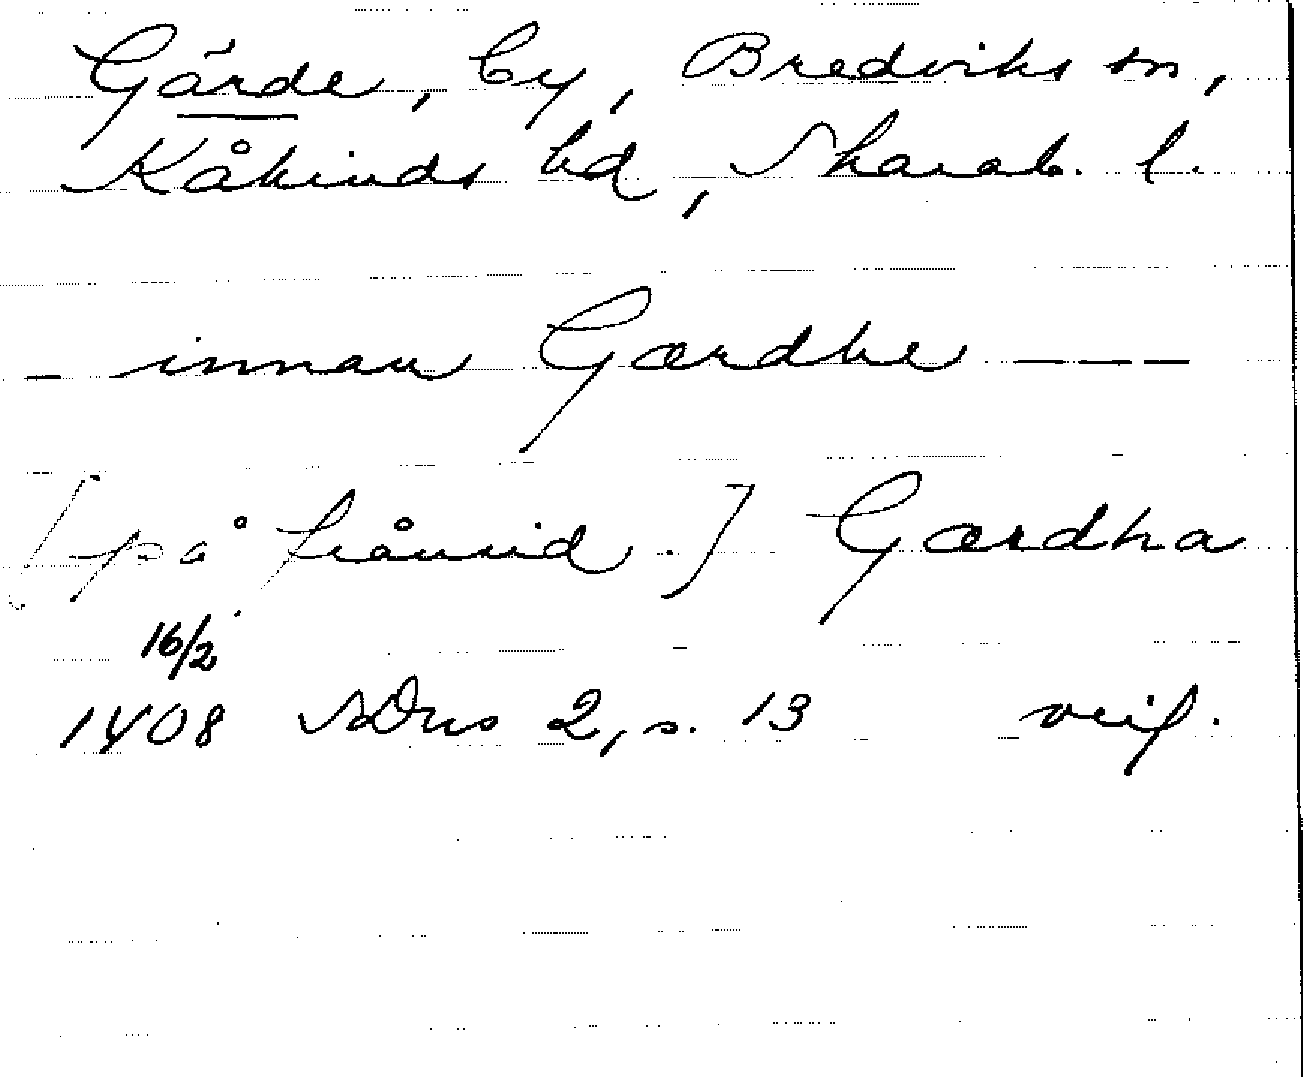 Gärde, by, Bredviks sn,
Kåkinds hd, Skarab. l.
– innan Gærdhe ———
[på frånsid.] Gærdha
16/2
1408 SDns 2, s. 13